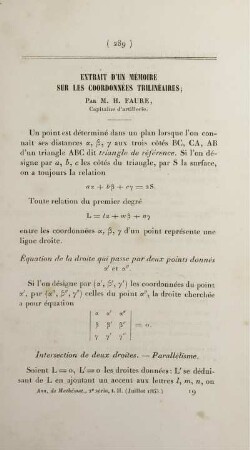 ( 289 )
EXTRAIT D'UN MÉMOIRE
SUR LES COORDONNÉES TRILINÉAIRES;
PAR M. H. FAURE,
Capitaine d'artillerie.
Un point est déterminé dans un plan lorsque l'on con-
naît ses distances α, β, γ aux trois côtés BC, CA, AB
d'un triangle ABC dit triangle de référence. Si l'on dé-
signe par a, b, c les côtés du triangle, par S la surface,
on a toujours la relation
aα + bβ + cγ = 2S.
Toute relation du premier degré
L = lα + mβ + nγ
entre les coordonnées α, β, γ d'un point représente une
ligne droite.
Équation de la droite qui passe par deux points donnés
α' et α".
Si l'on désigne par (α', β', γ') les coordonnées du point
α', par (α", β", γ") celles du point α", la droite cherchée
a pour équation
α α' α"
β β' β" = 0.
γ γ' γ"
Intersection de deux droites. — Parallélisme.
Soient L = 0, L' = 0 les droites données: L' se dédui-
sant de L en ajoutant un accent aux lettres l, m, n, ou
Ann. de Mathémat., 2e série, t. II. (Juillet 1863.) 19